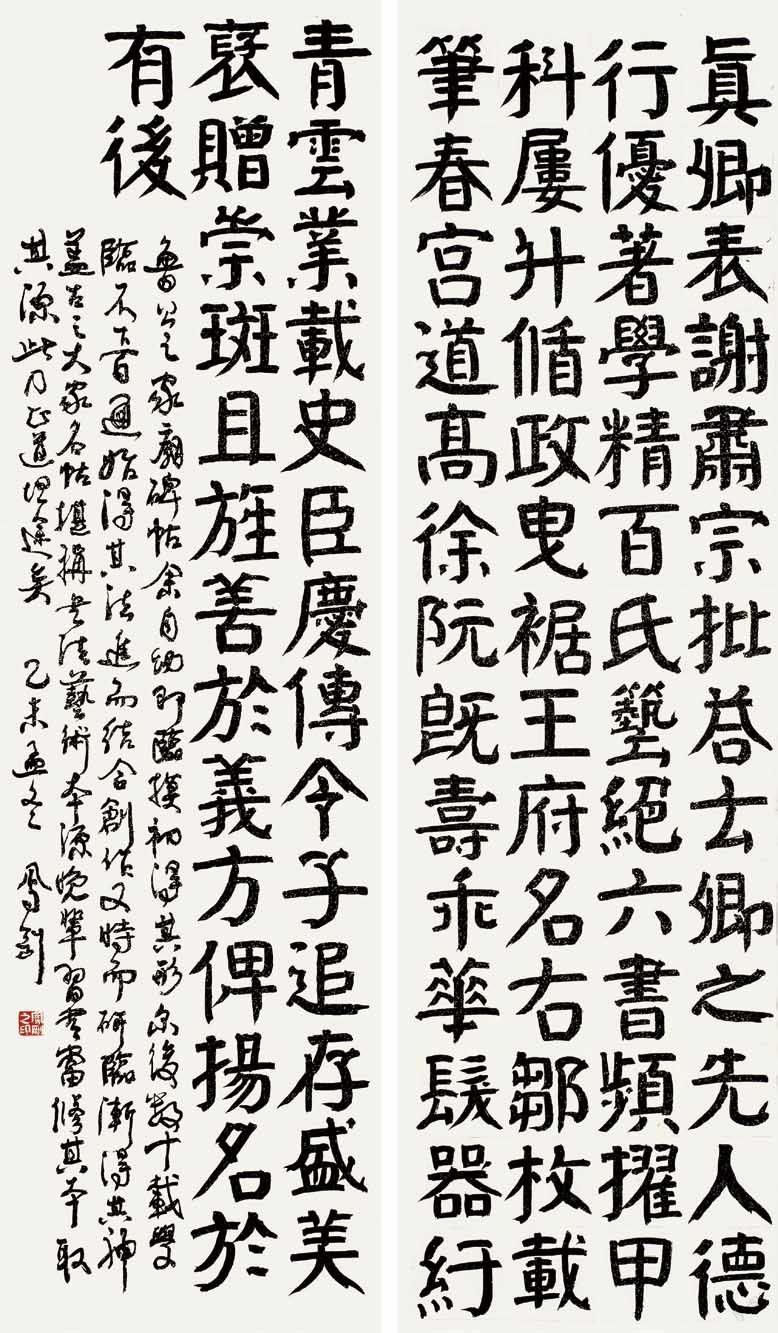 眞卿表謝肅宗批荅云卿之先人德
行優著學精百氏藝絕六書頻擢甲
科屢升循政曳裾王府名右鄒枚載
筆春宮道高徐阮既壽乖華髮器紆
青雲業載史臣慶傳令子追存盛美
褒贈崇斑且旌善於義方俾揚名於
有後
魯公之家廟碑帖余自幼即臨摸初得其形尔後數十載學
臨不下百通始得其法進而結合創作又時而研臨漸得其神
蓋古之大家名帖堪稱書法藝術本源晚輩習書當修其本取
其源此乃正道坦途矣 乙未孟冬 鳳